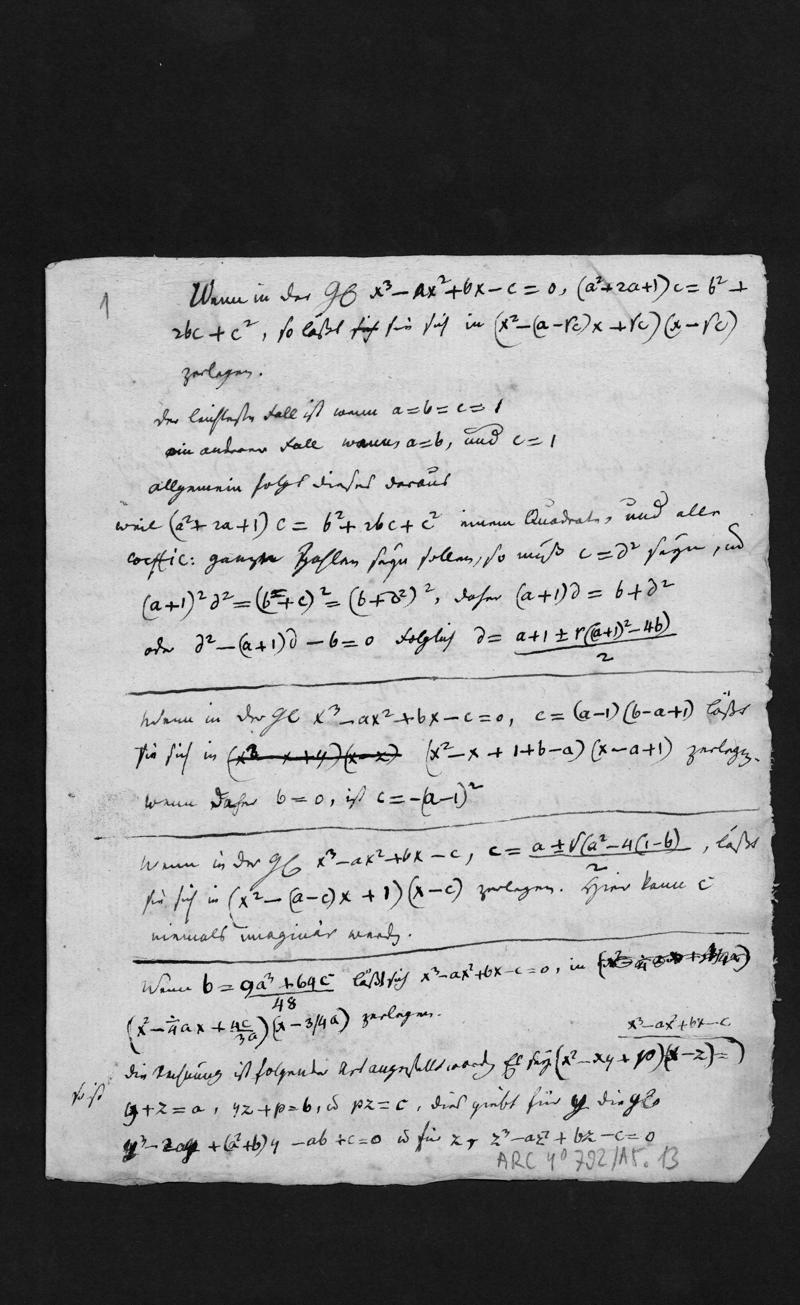 1
Wenn in der Gl x³ − ax² + bx − c = 0, (a²+2a+1)c = b² +
2bc + c², so läßt sich sie sich in (x² − (a−√c)x + √c)(x − √c)
zerlegen.
der leichteste Fall ist wenn a = b = c = 1
ein anderer Fall wann a = b, und c = 1
allgemein folgt dieses daraus
weil (a² + 2a + 1) c = b² + 2bc + c² einem Quadrate, und alle
coeffic: ganze Zahlen seyn sollen, so muß c = ∂² seyn, und
(a+1)²∂² = (b + c)² = (b+∂²)², daher (a+1)∂ = b + ∂²
oder ∂² − (a+1)∂ − b = 0 folglich ∂ = (a+1 ± √((a+1)² − 4b))/2
Wenn in der Gl x³ − ax² + bx − c = 0, c = (a−1)(b−a+1) läßt
sie sich in (x² − x + 1 + b − a)(x − a + 1) zerlegen.
wenn daher b = 0, ist c = −(a−1)²
Wenn in der Gl x³ − ax² + bx − c, c = (a ± √(a² − 4(1−b))/2, läßt
sie sich in (x² − (a−c)x + 1)(x − c) zerlegen. Hier kann c
niemals imaginär werden.
Wenn b = (9a³ + 64c)/48 läßt sich x³ − ax² + bx − c = 0, in
(x² − ¼ax + 4c/3a)(x − 3/4a) zerlegen.
x³ − ax² + bx − c
die Rechnung ist folgender Art angestellt worden Es sey (x² − xy + p)(x − z) =
so ist
y + z = a, yz + p = b, & pz = c, dies giebt für y die gl
y³ − 2ay + (a²+b)y − ab + c = 0 & für z, z³ − az² + bz − c = 0
ARC 4° 792/A5. 13